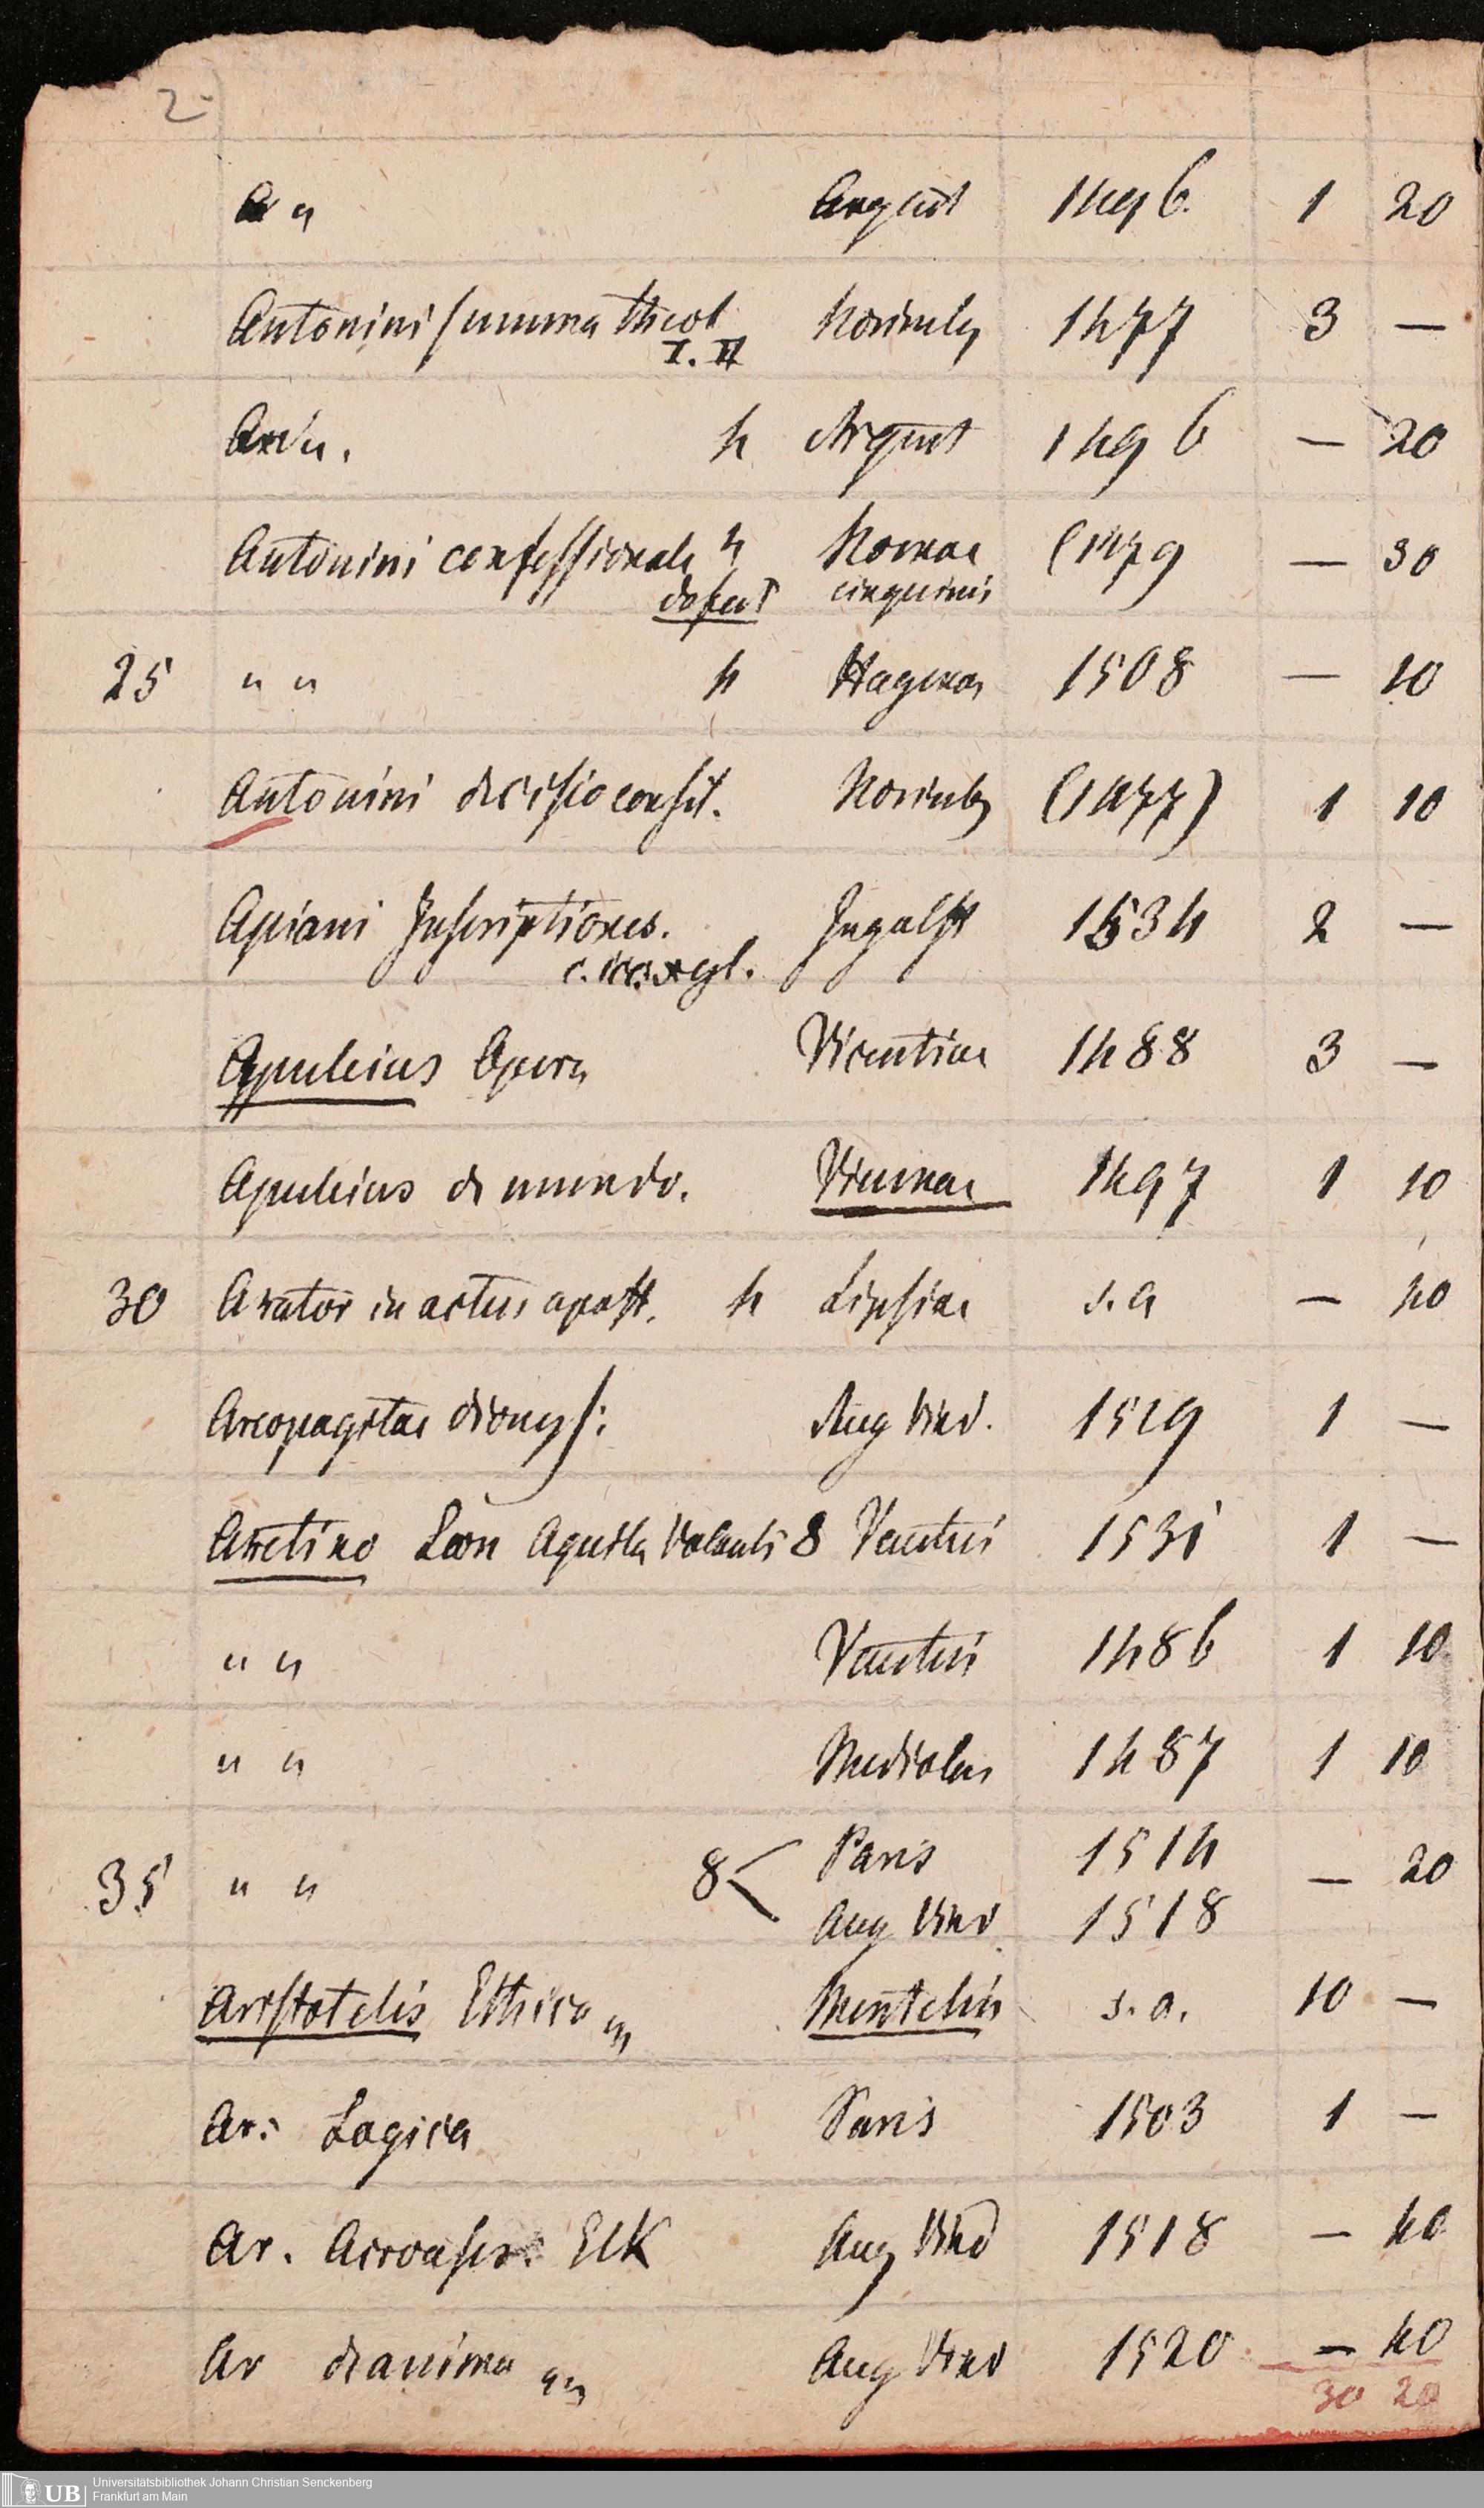 2
" " Argent 1496. 1 20
Antonini summa theol Norimbg 1477 3 —
I. II
4 Argent 1496 — 20
Antonini confessionale 4 Romae (1479 — 30
defect
25 " " 4 Hagenoa 1508 — 10
Antonini decisio consil. Norimbg (1477) 1 10
Apiani Inscriptiones. Ingolst 1534 2 —
Apuleius Opera Vicentiae 1488 3 —
Apuleius de mundo. Viennae 1497 1 10
30 Arator in actus apost. 4 Lipsiae s. a — 40
Areopagitae dionys: Aug Vind. 1519 1 —
Aretino Leon Aquila Volante 8 Venetiis 1531 1 —
" " Venetiis 1486 1 10
" " Mediolan 1487 1 10
35 " " 8 < Paris 1514 — 20
Aug Vind. 1518
Aristotelis Ethica Mentelin s. a. 10 —
Ar: Logica Paris 1503 1 —
Ar. Acroases: Eck Aug Vind 1518 — 40
Ar de anima " " Aug Vind 1520 — 40
30 20
Universitätsbibliothek Johann Christian Senckenberg
UB Frankfurt am Main